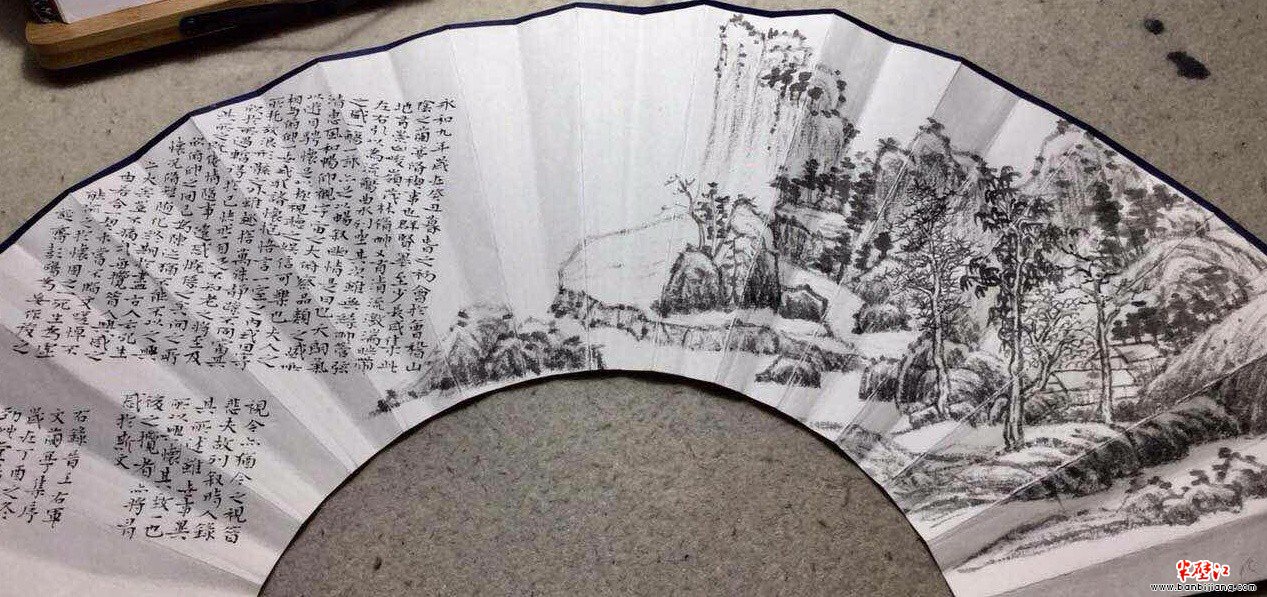 永和九年歲在癸丑暮春之初會於會稽山
陰之蘭亭脩稧事也群賢畢至少長咸集此
地有崇山峻嶺茂林脩竹又有清流激湍暎帶
左右引以為流觴曲水列坐其次雖無絲竹管弦
之盛一觴一詠亦足以暢敘幽情是日也天朗氣
清惠風和暢仰觀宇宙之大俯察品類之盛所
以遊目騁懷足以極視聽之娛信可樂也夫人之
相與俯仰一世或取諸懷抱悟言一室之內或因寄
所託放浪形骸之外雖趣捨萬殊靜躁不同當其
欣於所遇暫得於己快然自足不知老之將至及
其所之既倦情隨事遷感慨係之矣向之所
欣俯仰之間已為陳迹猶不能不以之興
懷況脩短隨化終期於盡古人云死生
亦大矣豈不痛哉每攬昔人興感之
由若合一契未嘗不臨文嗟悼不
能喻之於懷固知一死生為虛
誕齊彭殤為妄作後之
視今亦猶今之視昔
悲夫故列敘時人錄
其所述雖世事異
所以興懷其致一也
後之攬者亦將有
感於斯文
右錄晉王右軍
文蘭亭集序
歲在丁酉之冬
半壁江
www.banbijiang.com